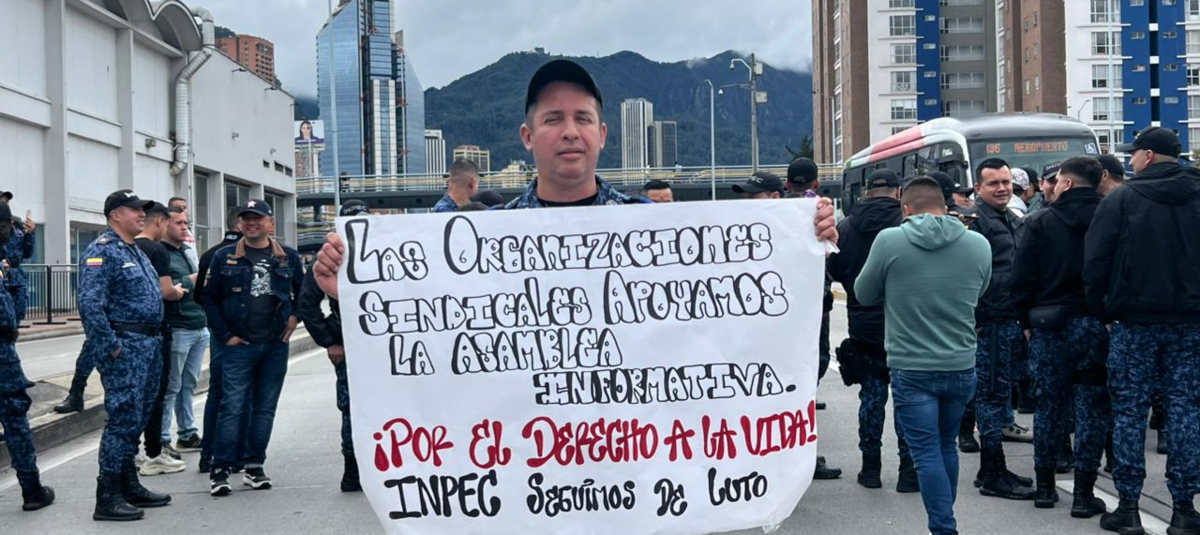 Las Organizaciones
Sindicales Apoyamos
La Asamblea
Informativa.
¡Por El Derecho A La Vida!
INPEC Seguimos de Luto
U86 AEROPUERTO